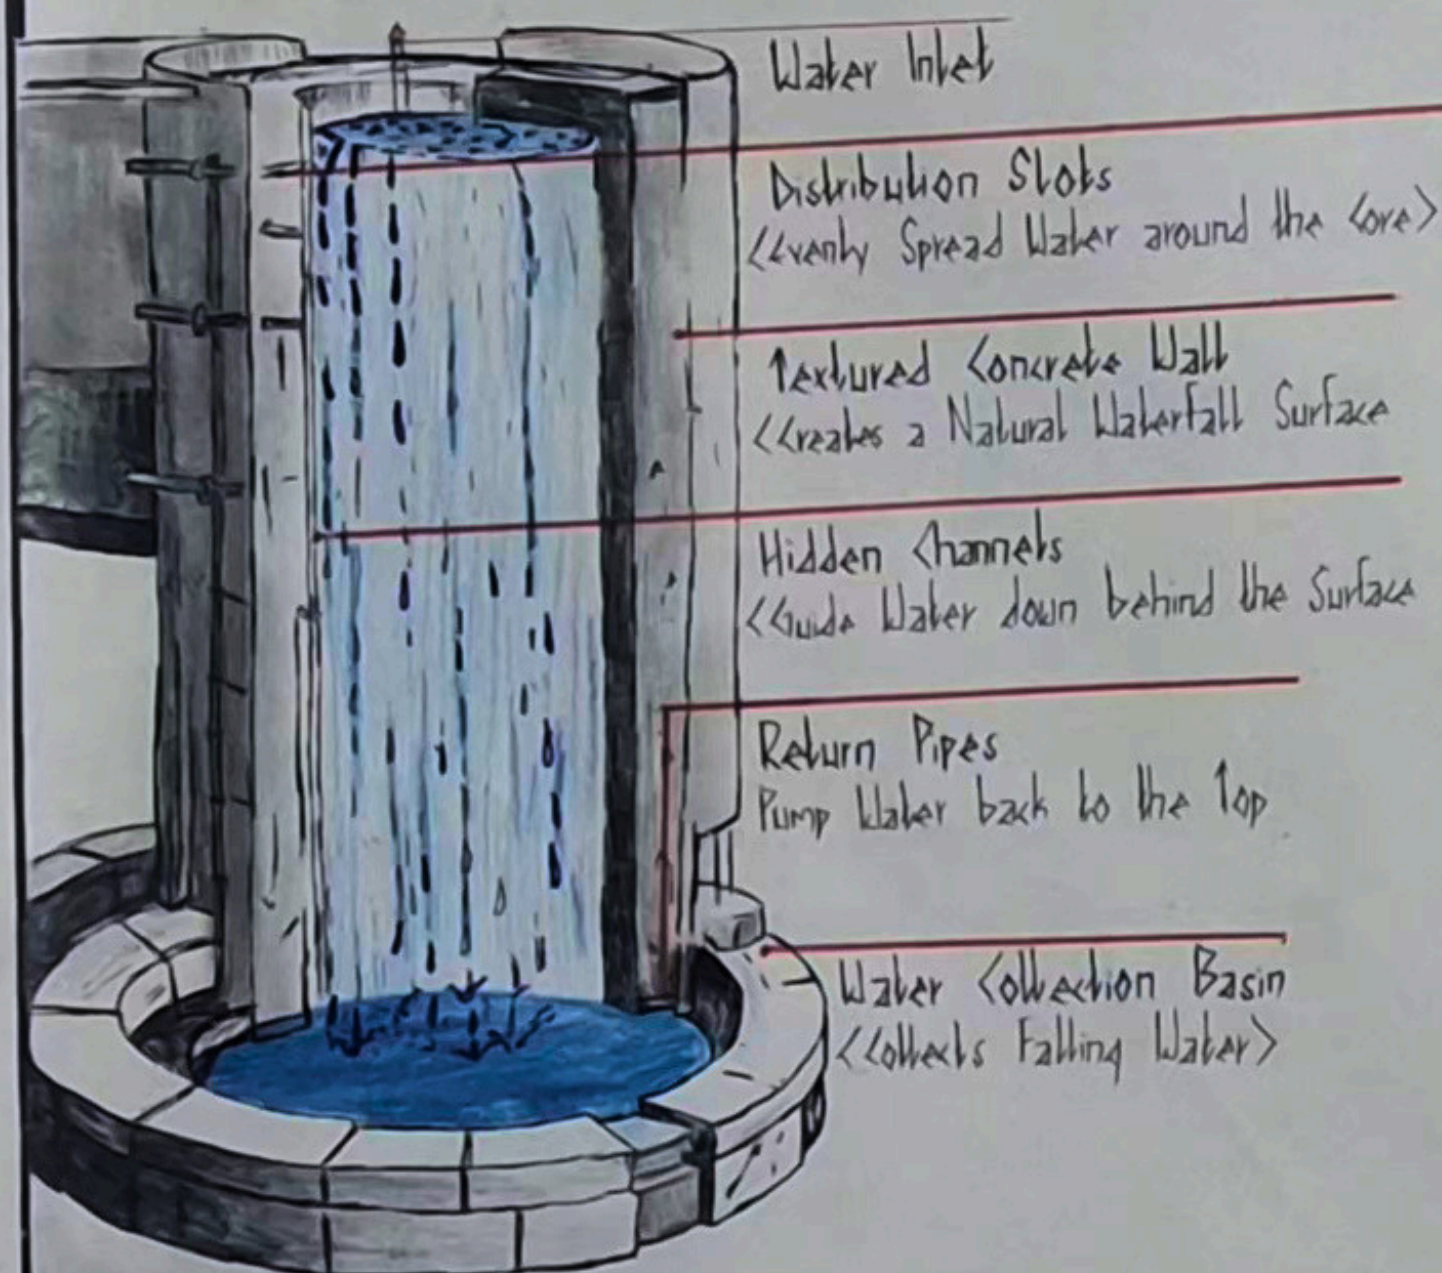 Water Inlet
Distribution Slots
<Evenly Spread Water around the Core>
Textured Concrete Wall
<Creates a Natural Waterfall Surface
Hidden Channels
<Guide Water down behind the Surface
Return Pipes
Pump Water back to the Top
Water Collection Basin
<Collects Falling Water>